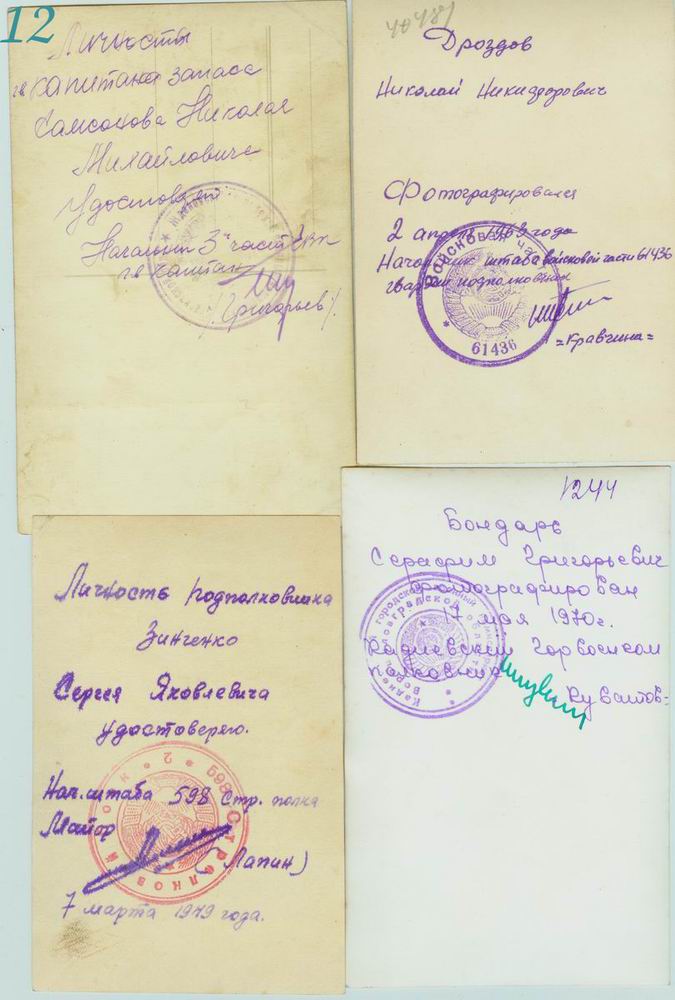 12
Личность
гв капитана запаса
Самсонова Николая
Михайловича
Удостоверяю:
Начальник 3й части
гв капитан
/Григорьев/
40487
Дроздов
Николай Никифорович
Фотографировался
2 апреля 1963 года
Начальник штаба войсковой части 61436
гвардии подполковник
=Кравчина=
Войсковая часть
61436
Личность подполковника
Зинченко
Сергея Яковлевича
удостоверяю.
Нач. штаба 598 Стр. полка
Майор
(Лапин)
7 марта 1949 года.
598 Стрелковый
1244
Бондарь
Серафим Григорьевич
фотографирован
17 мая 1970г.
Кадиевский Горвоенком
полковник
Кувантов=